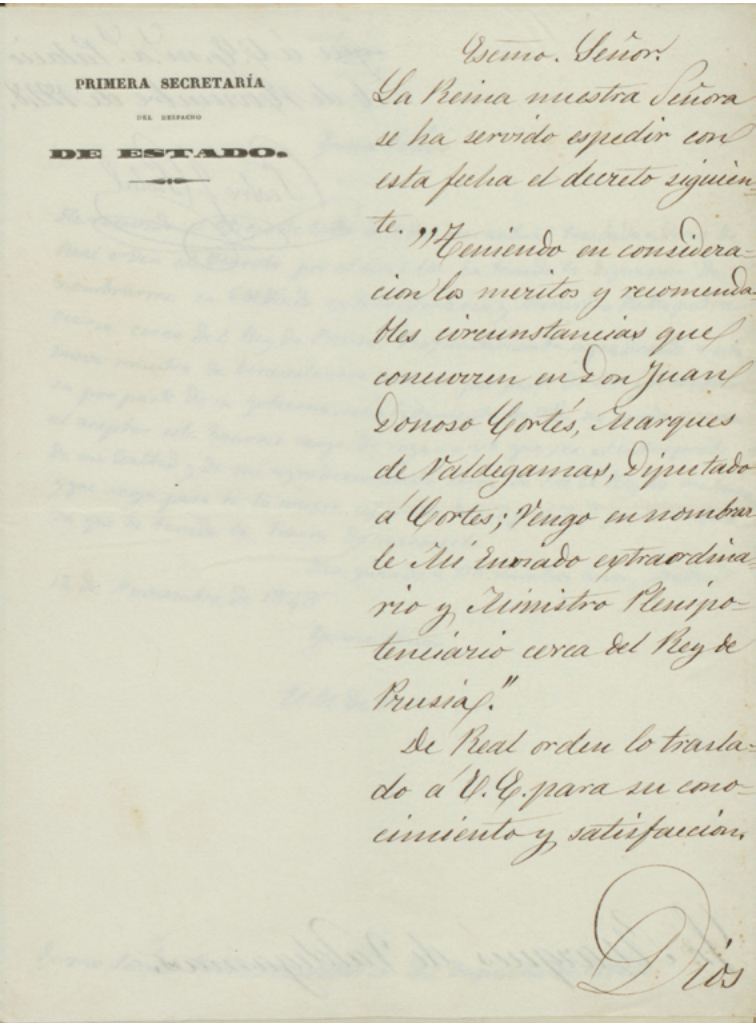 PRIMERA SECRETARÍA
DEL DESPACHO
DE ESTADO.
Escmo. Señor.
La Reina nuestra Señora
se ha servido espedir con
esta fecha el decreto siguien-
te. "Teniendo en considera-
cion los meritos y recomenda
bles circunstancias que
concurren en Don Juan
Donoso Cortés, Marques
de Valdegamas, Diputado
á Cortes; Vengo en nombrar
le Mi Enviado extraordina-
rio y Ministro Plenipo-
tenciario cerca del Rey de
Prusia."
De Real orden lo trasla-
do á V.E. para su cono-
cimiento y satisfaccion.
Dios